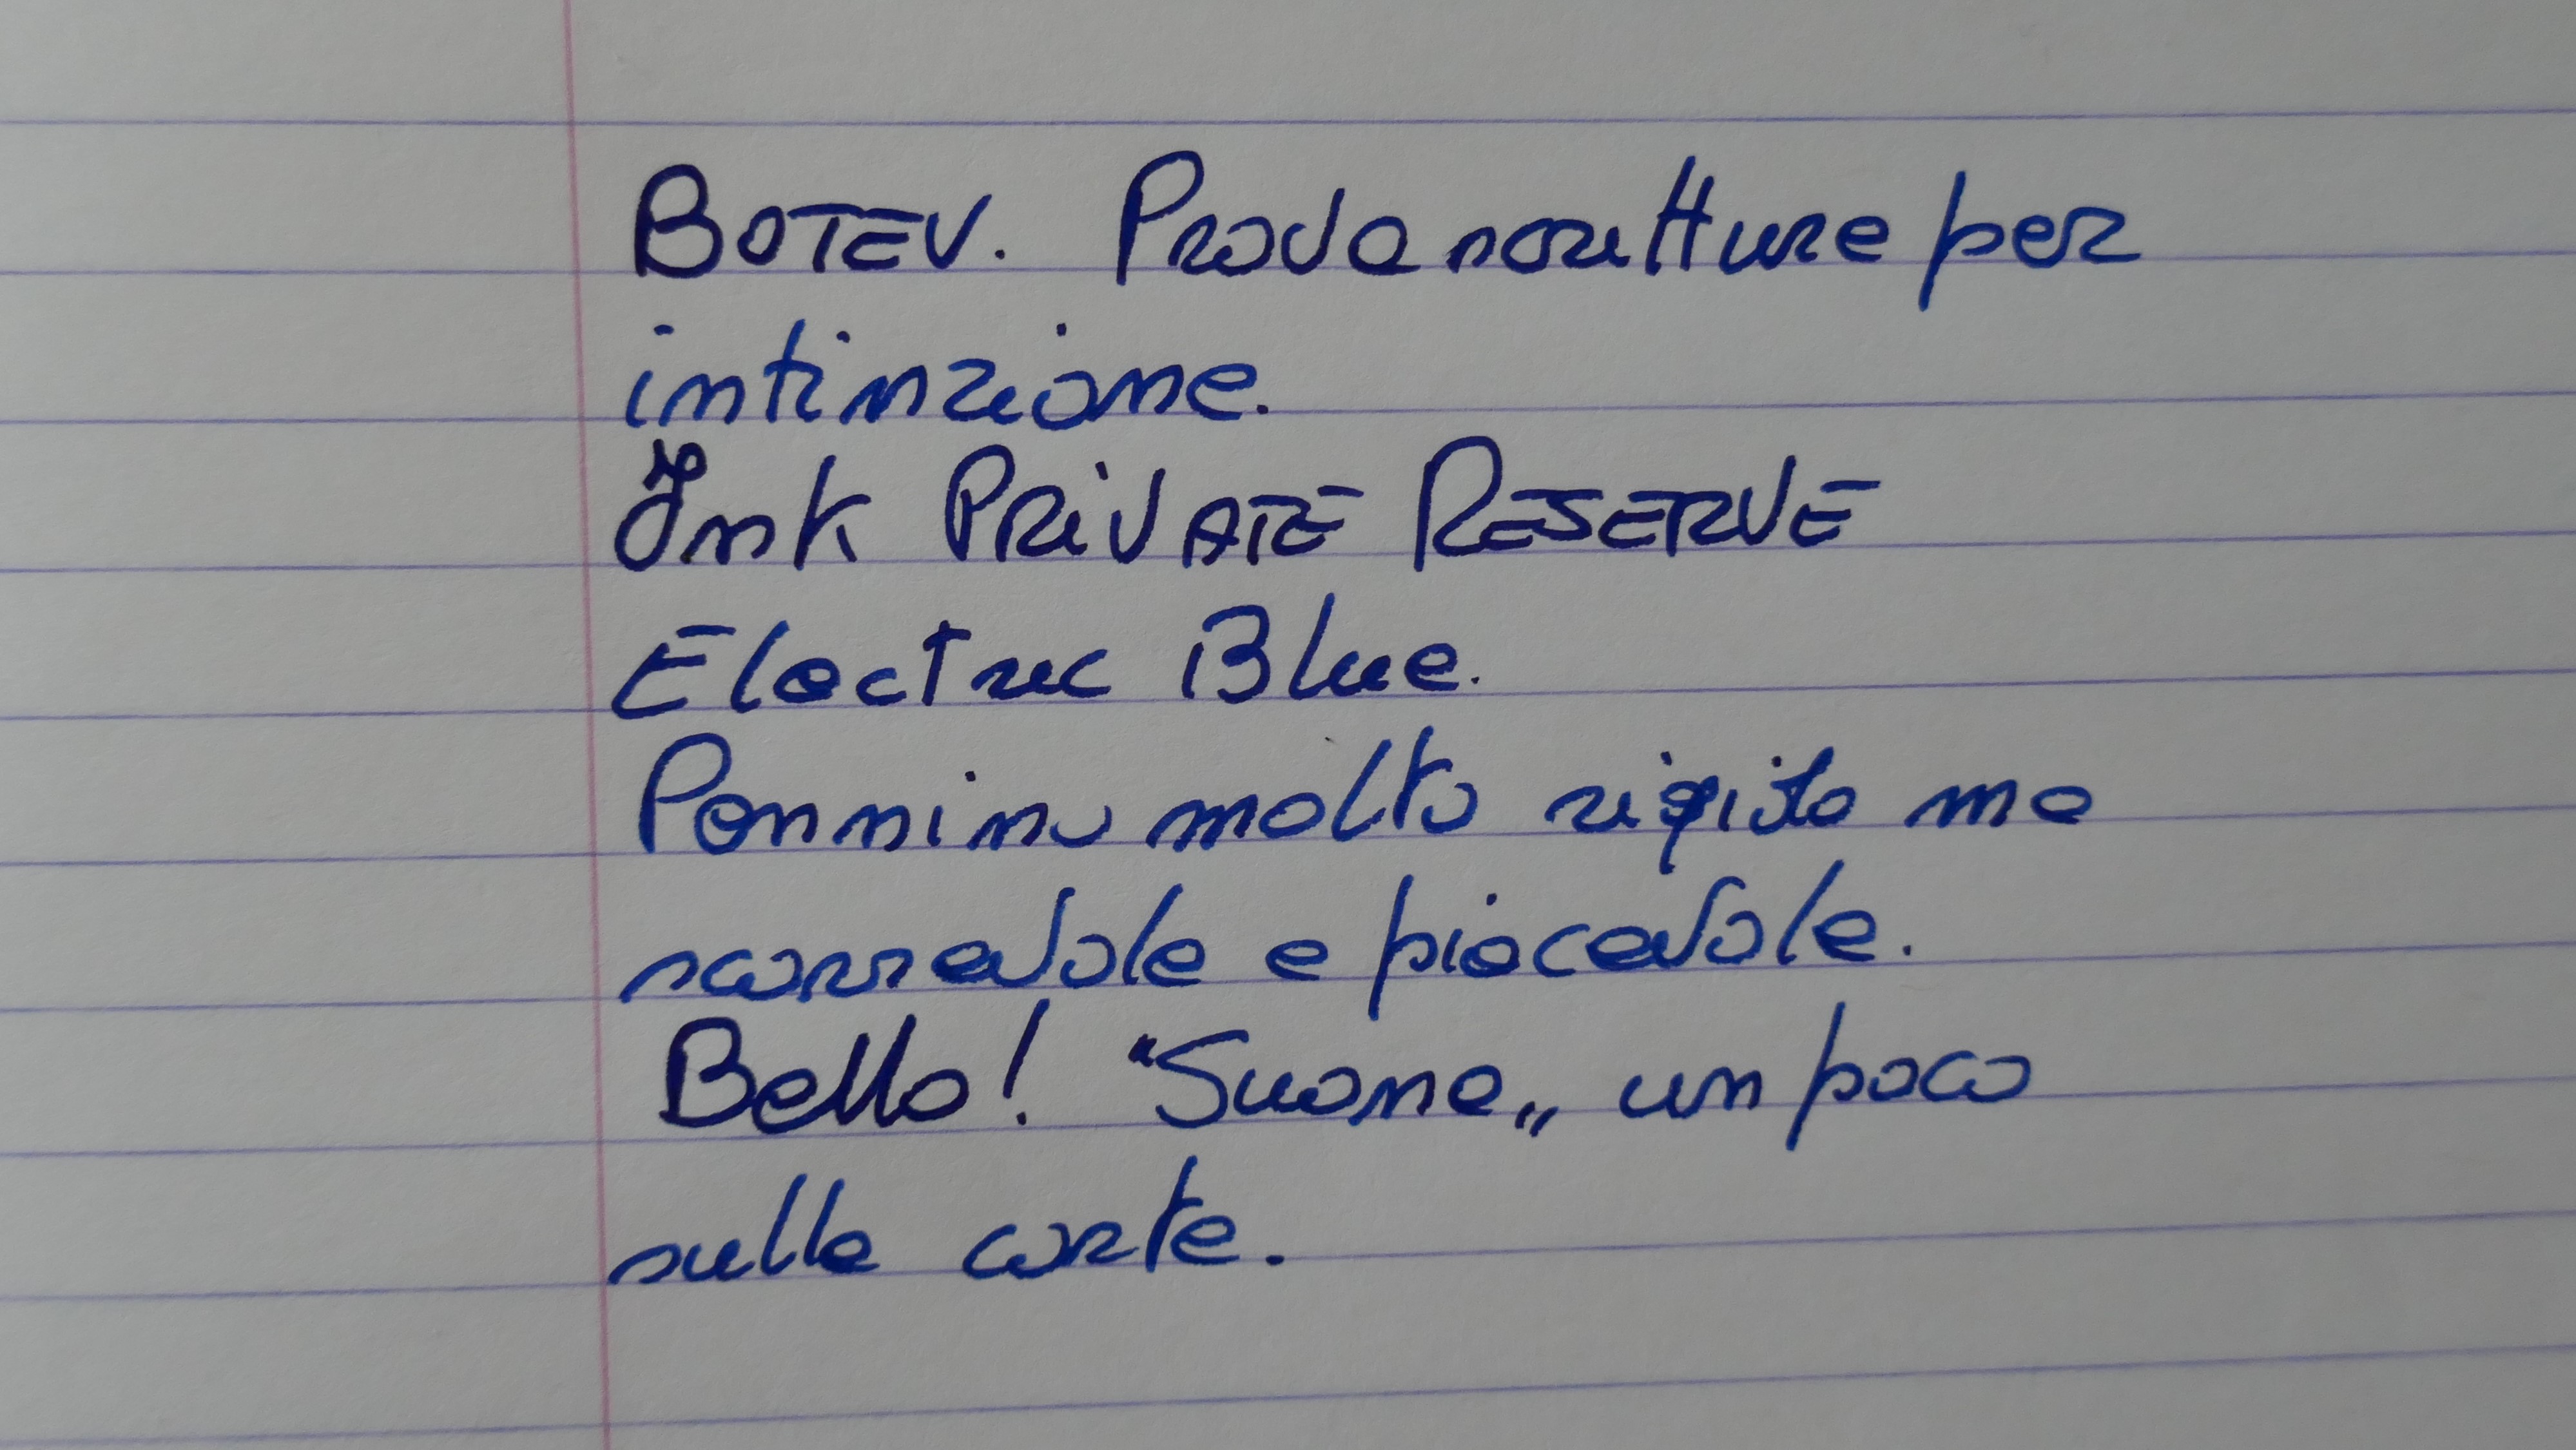 BOTEV. Prova scritture per
intinzione.
Ink PRiVATE RESERVE
Electric Blue.
Pennino molto rigido ma
scorrevole e piacevole.
Bello! "Suona„ un poco
sulla carta.